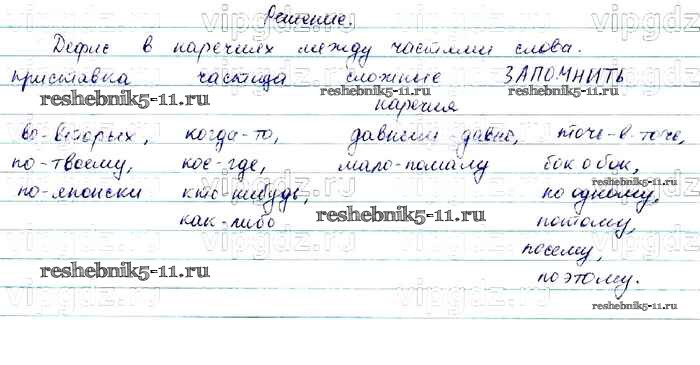 Решение.
Дефис в наречиях между частями слова.
приставка частица сложные ЗАПОМНИТЬ
reshebnik5-11.ru reshebnik5-11.ru reshebnik5-11.ru
наречия
во-вторых, когда-то, давным-давно, точь-в-точь,
по-твоему, кое-где, мало-помалу бок о бок,
reshebnik5-11.ru
по-японски кто-нибудь, по одному,
reshebnik5-11.ru
как-либо потому,
посему,
reshebnik5-11.ru
поэтому.
reshebnik5-11.ru
vipgdz.ru